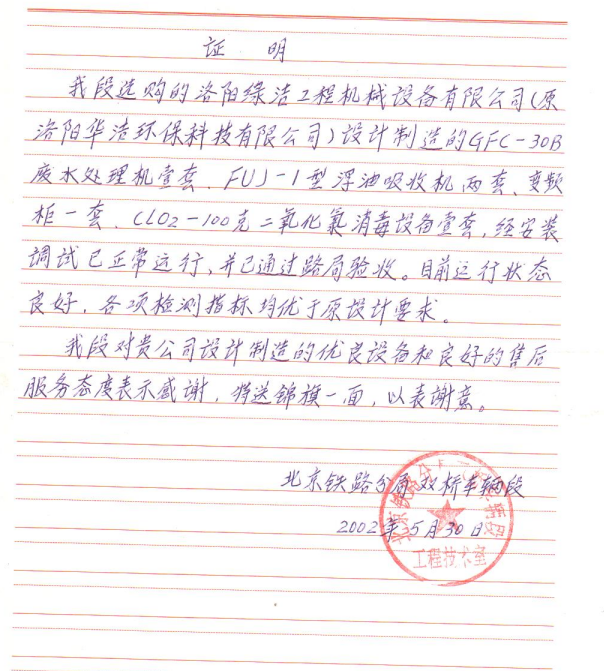 证 明
我段选购的洛阳绿洁工程机械设备有限公司(原
洛阳华洁环保科技有限公司)设计制造的GFC-30B
废水处理机壹套、FUJ-1型浮油吸收机两套、变频
柜一套、CLO2-100克二氧化氯消毒设备壹套,经安装
调试已正常运行,并已通过路局验收。目前运行状态
良好,各项检测指标均优于原设计要求。
我段对贵公司设计制造的优良设备和良好的售后
服务态度表示感谢,特送锦旗一面,以表谢意。
北京铁路分局双桥车辆段
2002年5月30日
工程技术室